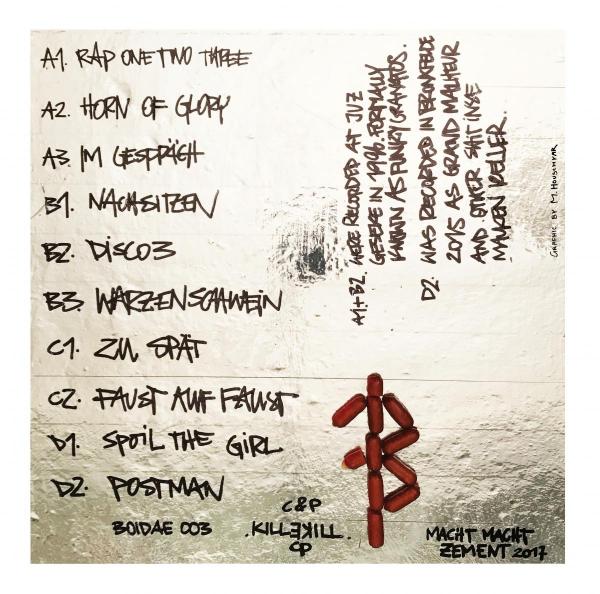 A1. RAP ONE TWO THREE
A2. HORN OF GLORY
A3. IM GESPRÄCH
B1. NACHSITZEN
B2. DISCO3
B3. WARZENSCHWEIN
C1. ZU SPÄT
C2. FAUST AUF FAUST
D1. SPOIL THE GIRL
D2. POSTMAN
BOIDAE 003
C&P
.KILLEKILL.
CP
A1+B2. WERE RECORDED AT JUZ
GESEKE IN 1996 FORMALLY
KNOWN AS FUNKY GRANATOS.
D2. WAS RECORDED IN
2015 AS GRAND MALHEUR
AND OTHER SHIT INSE
KELLER.
GRAPHIC BY M. HOUSCHYAR
MACHT MACHT
ZEMENT 2017